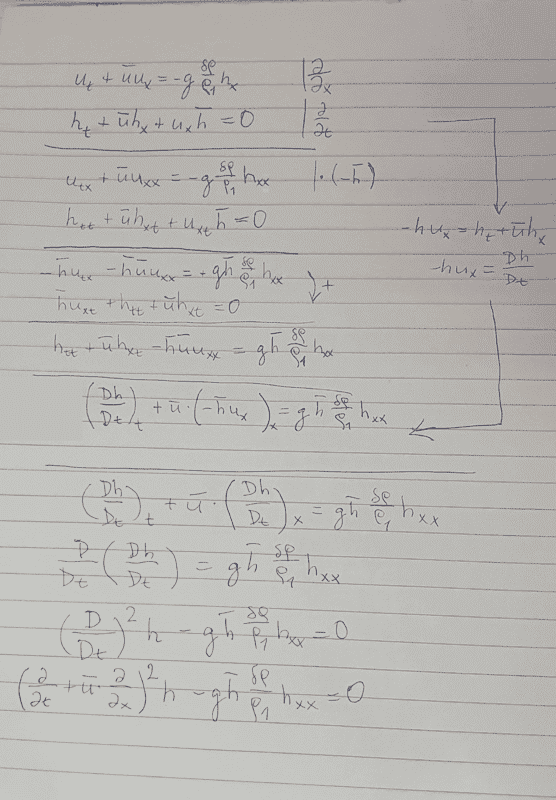 u_t + ūu_x = -g δρ/ρ₁ h_x | ∂/∂x
h_t + ūh_x + u_x h̄ = 0 | ∂/∂t
u_tx + ūu_xx = -g δρ/ρ₁ h_xx | · (-h̄)
h_tt + ūh_xt + u_xt h̄ = 0
-hu_x = h_t + ūh_x
-hu_x = Dh/Dt
-h̄u_tx - h̄ūu_xx = +gh̄ δρ/ρ₁ h_xx
h̄u_xt + h_tt + ūh_xt = 0
+
h_tt + ūh_xt - h̄ūu_xx = gh̄ δρ/ρ₁ h_xx
(Dh/Dt)_t + ū · (-h̄u_x)_x = gh̄ δρ/ρ₁ h_xx
(Dh/Dt)_t + ū · (Dh/Dt)_x = gh̄ δρ/ρ₁ h_xx
D/Dt (Dh/Dt) = gh̄ δρ/ρ₁ h_xx
(D/Dt)² h - gh̄ δρ/ρ₁ h_xx = 0
(∂/∂t + ū · ∂/∂x)² h - gh̄ δρ/ρ₁ h_xx = 0